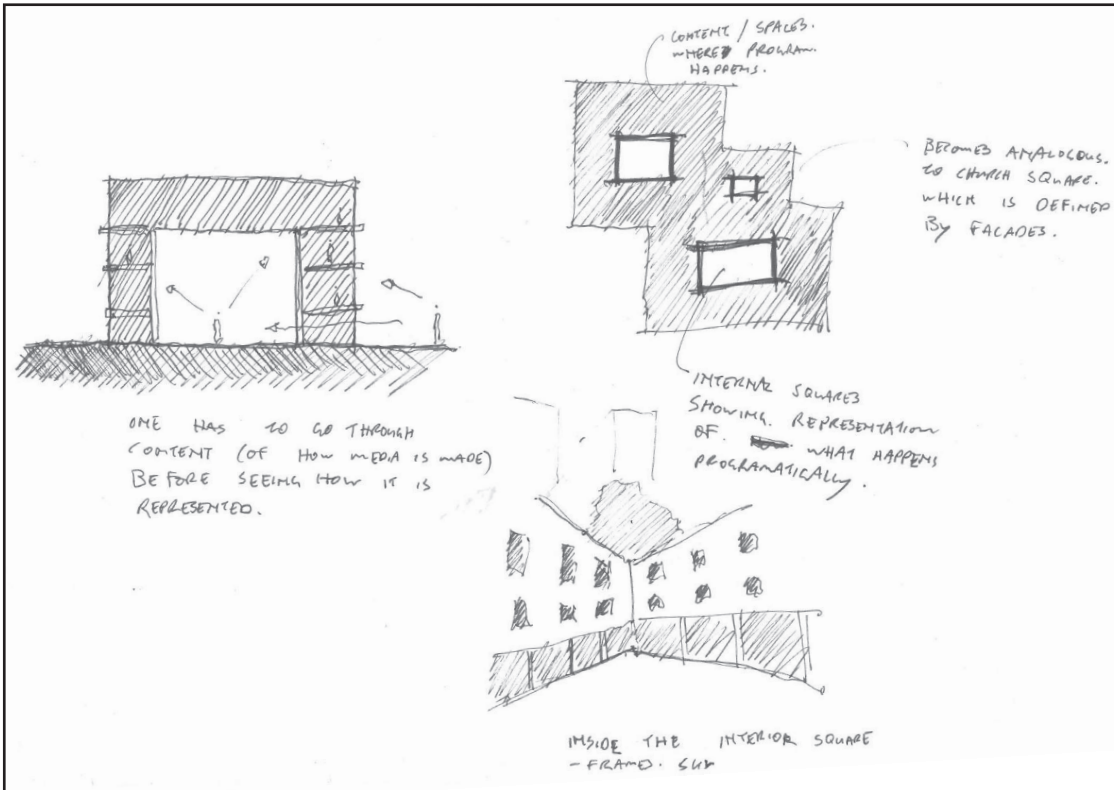 CONTENT / SPACES.
WHERE PROGRAM.
HAPPENS.
BECOMES ANALOGOUS.
TO CHURCH SQUARE.
WHICH IS DEFINED
BY FACADES.
ONE HAS TO GO THROUGH
CONTENT (OF HOW MEDIA IS MADE)
BEFORE SEEING HOW IT IS
REPRESENTED.
INTERNAL SQUARES
SHOWING. REPRESENTATION
OF. WHAT HAPPENS
PROGRAMATICALLY.
INSIDE THE INTERIOR SQUARE
- FRAMED. SKY